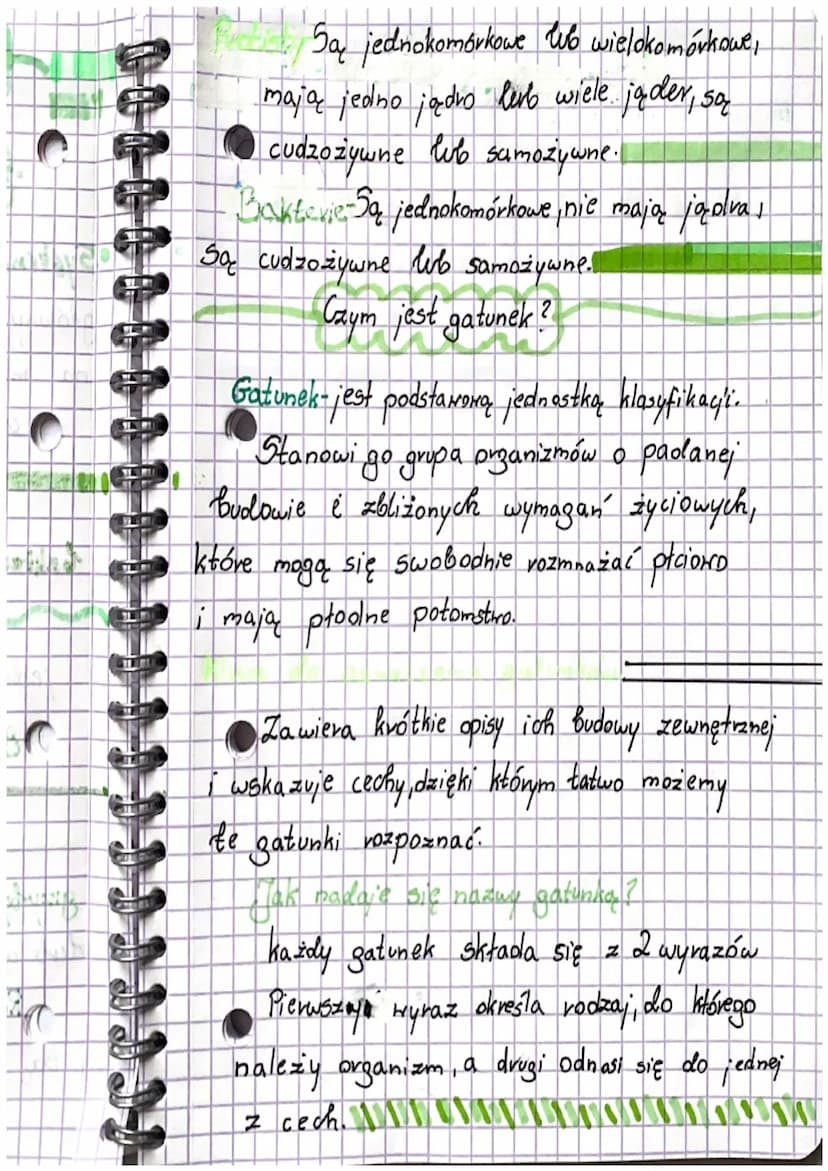 Protisty Są jednokomórkowe lub wielokomórkowe,
mają jedno jądro lub wiele jąder, są
cudzożywne lub samożywne.
Bakterie-Są jednokomórkowe, nie mają jądra,
są cudzożywne lub samożywne.
Czym jest gatunek?
Gatunek-jest podstawową jednostką klasyfikacji.
Stanowi go grupa organizmów o podanej
budowie i zbliżonych wymagań życiowych,
które mogą się swobodnie rozmnażać płciowo
i mają płodne potomstwo.
Klucz do oznaczania gatunków
Zawiera krótkie opisy ich budowy zewnętrznej
i wskazuje cechy, dzięki którym łatwo możemy
te gatunki rozpoznać.
Jak nadaje się nazwy gatunką?
każdy gatunek składa się z 2 wyrazów
Pierwszy wyraz określa rodzaj, do którego
należy organizm, a drugi odnosi się do jednej
z cech.